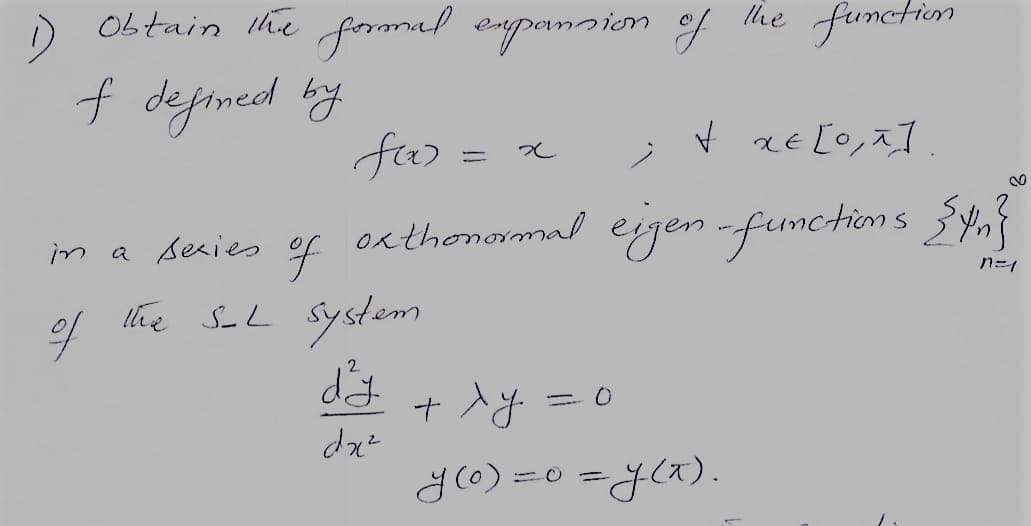 1) Obtain the formal expansion of the function
f defined by
f(x) = x ; ∀ x∈[0,π].
in a series of orthonormal eigen-functions {ψn}∞n=1
of the S-L system
d²y/dx² + λy = 0
y(0) = 0 = y(π).